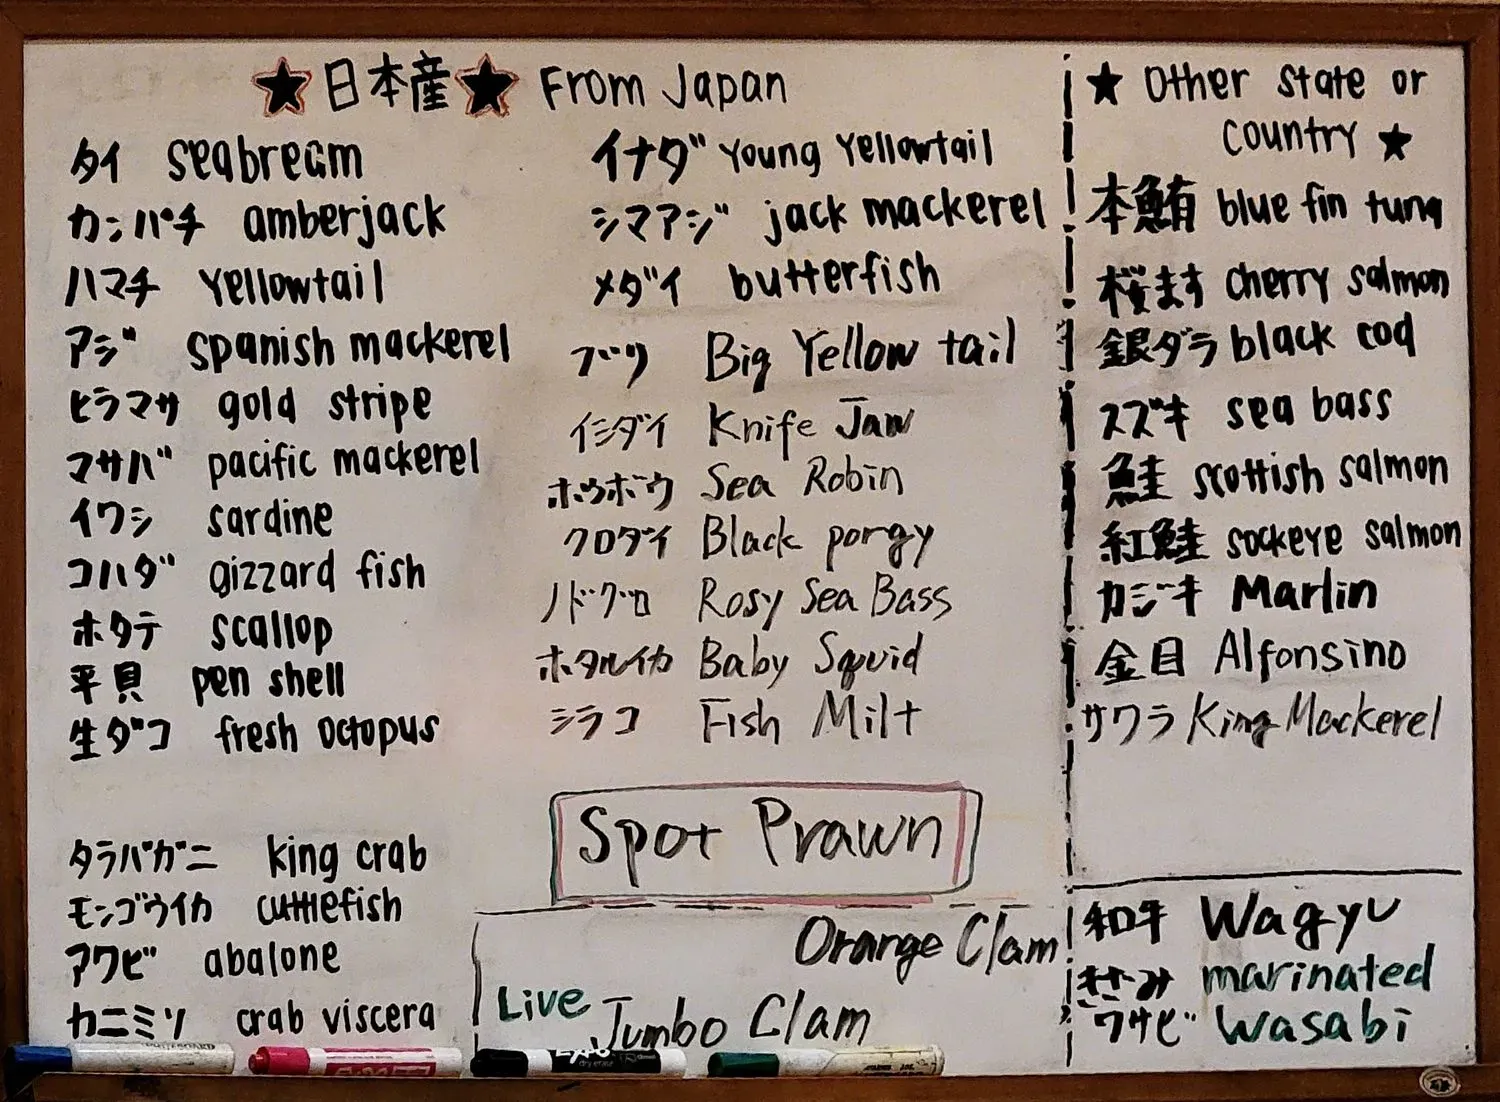 ★日本産★ From Japan
タイ seabream
カンパチ amberjack
ハマチ Yellowtail
アジ spanish mackerel
ヒラマサ gold stripe
マサバ pacific mackerel
イワシ sardine
コハダ gizzard fish
ホタテ scallop
平貝 pen shell
生ダコ fresh octopus
タラバガニ king crab
モンゴウイカ cuttlefish
アワビ abalone
カニミソ crab viscera
イナダ Young Yellowtail
シマアジ jack mackerel
メダイ butterfish
ブリ Big Yellow tail
イシダイ Knife Jaw
ホウボウ Sea Robin
クロダイ Black porgy
ノドグロ Rosy Sea Bass
ホタルイカ Baby Squid
シラコ Fish Milt
Spot Prawn
Orange Clam
Live Jumbo Clam
★ Other State or
Country ★
本鮪 blue fin tuna
桜ます cherry salmon
銀ダラ black cod
スズキ sea bass
鮭 scottish salmon
紅鮭 sockeye salmon
カジキ Marlin
金目 Alfonsino
サワラ King Mackerel
和牛 Wagyu
きざみ marinated
ワサビ wasabi
EXPO